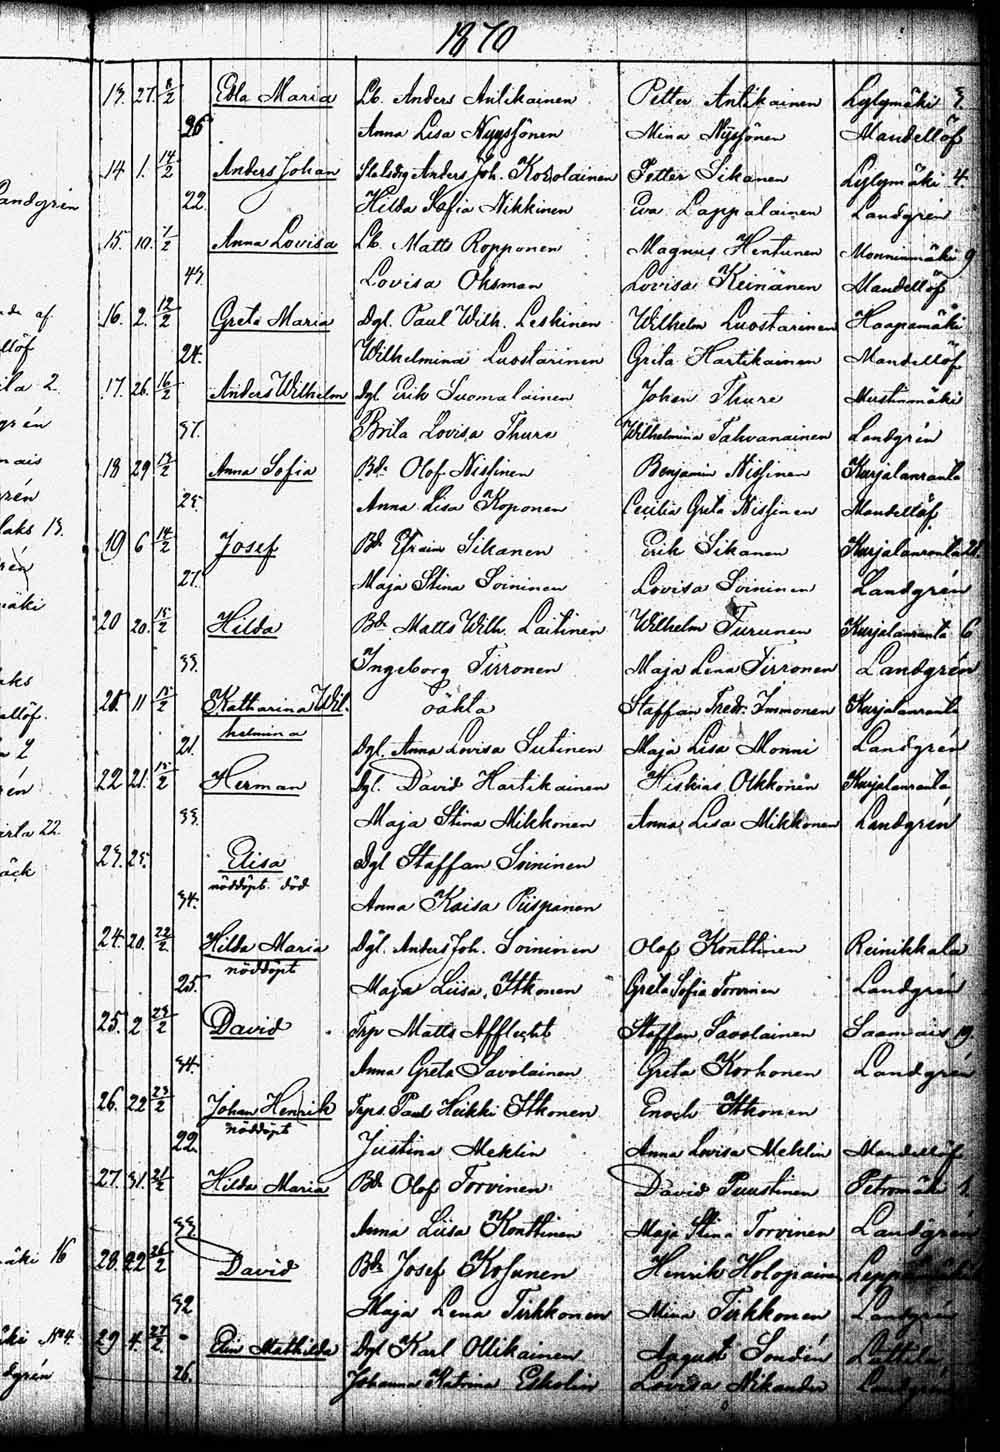 1870
13. 27. 8/2 Edla Maria Lb. Anders Antikainen Petter Antikainen Lylymäki 3
26 Anna Lisa Nyyssönen Mina Nyssönen Mandellöf
14 1. 14/2 Anders Johan Anders Joh. Kokolainen Petter Sikanen Lylymäki 4.
andgrén 22 Hilda Sofia Nikkinen Eva Lappalainen Landgrén
15. 10. 7/2 Anna Lovisa Lb. Matts Ropponen Magnus Hentunen Monninmäki 9
43. Lovisa Oksman Lovisa Keinänen Mandellöf
af 16. 2. 12/2 Greta Maria Dgl. Paul Wilh. Leskinen Wilhelm Luostarinen Haapamäki
llöf 24. Wilhelmina Luostarinen Grita Hartikainen Mandellöf
2. 17. 26. 16/2 Anders Wilhelm Dgl Erik Suomalainen Johan Thure Mustinmäki
grén 37. Brita Lovisa Thure Wilhelmina Tahvanainen Landgrén
mais 18 29 13/2 Anna Sofia Bd. Olof Nissinen Benjamin Nissinen Kurjalanranta
rén 25. Anna Lisa Koponen Cecilia Greta Nissinen Mandellöf
laks 13. 19 6 14/2 Josef Bd. Efraim Sikanen Erik Sikanen Kurjalanranta 21.
rén 27. Maja Stina Soininen Lovisa Soininen Landgrén
mäki 20 20. 15/2 Hilda Bd. Matts Wilh. Laitinen Wilhelm Turunen Kurjalanranta 6
33. Ingeborg Tirronen Maja Lena Tirronen Landgrén
aks 21. 11 15/2 Katharina Wil- oäkta Staffan Thedr. Immonen Kurjalanranta
ellöf. helmina
2 21. Dgl. Anna Lovisa Sutinen Maja Lisa Monni Landgrén
rén 22 21. 15/2 Herman Dgl. David Hartikainen Hiskias Olkkonen Kurjalanranta
22. 33. Maja Stina Mikkonen Anna Lisa Mikkonen Landgrén
äck 23. 23. Elisa Dgl Staffan Soininen
nöddöpt. död
34. Anna Kaisa Piispanen
24. 20. 22/2 Hilda Maria Dgl. Anders Joh. Soininen Olof Konttinen Reinikkala
nöddöpt
25. Maja Liisa Itkonen Greta Sofia Torvinen Landgrén
25. 2 23/2 David Trp Matts Afflecht Staffan Savolainen Saamais 19.
34. Anna Greta Savolainen Greta Korhonen Landgrén
26. 22 23/2 Johan Henrik Trps. Paul Heikki Itkonen Enoch Itkonen
nöddöpt
22. Justina Meklin Anna Lovisa Meklin Mandellöf
27. 31. 26/2 Hilda Maria Bd. Olof Torvinen David Puustinen Petromäki 1.
33. Anna Liisa Konttinen Maja Stina Torvinen Landgrén
mäki 16 28. 22 26/2 David Bd. Josef Kosunen Henrik Holopainen
32 Maja Lena Tirkkonen Mina Tirkkonen Landgrén
No 4. 29 4. 27/2 Elin Mathilda Dgl Karl Ollikainen August Sondén Lättilä
dgrén 26. Johanna Katrina Eskolin Lovisa Nikander Landgrén